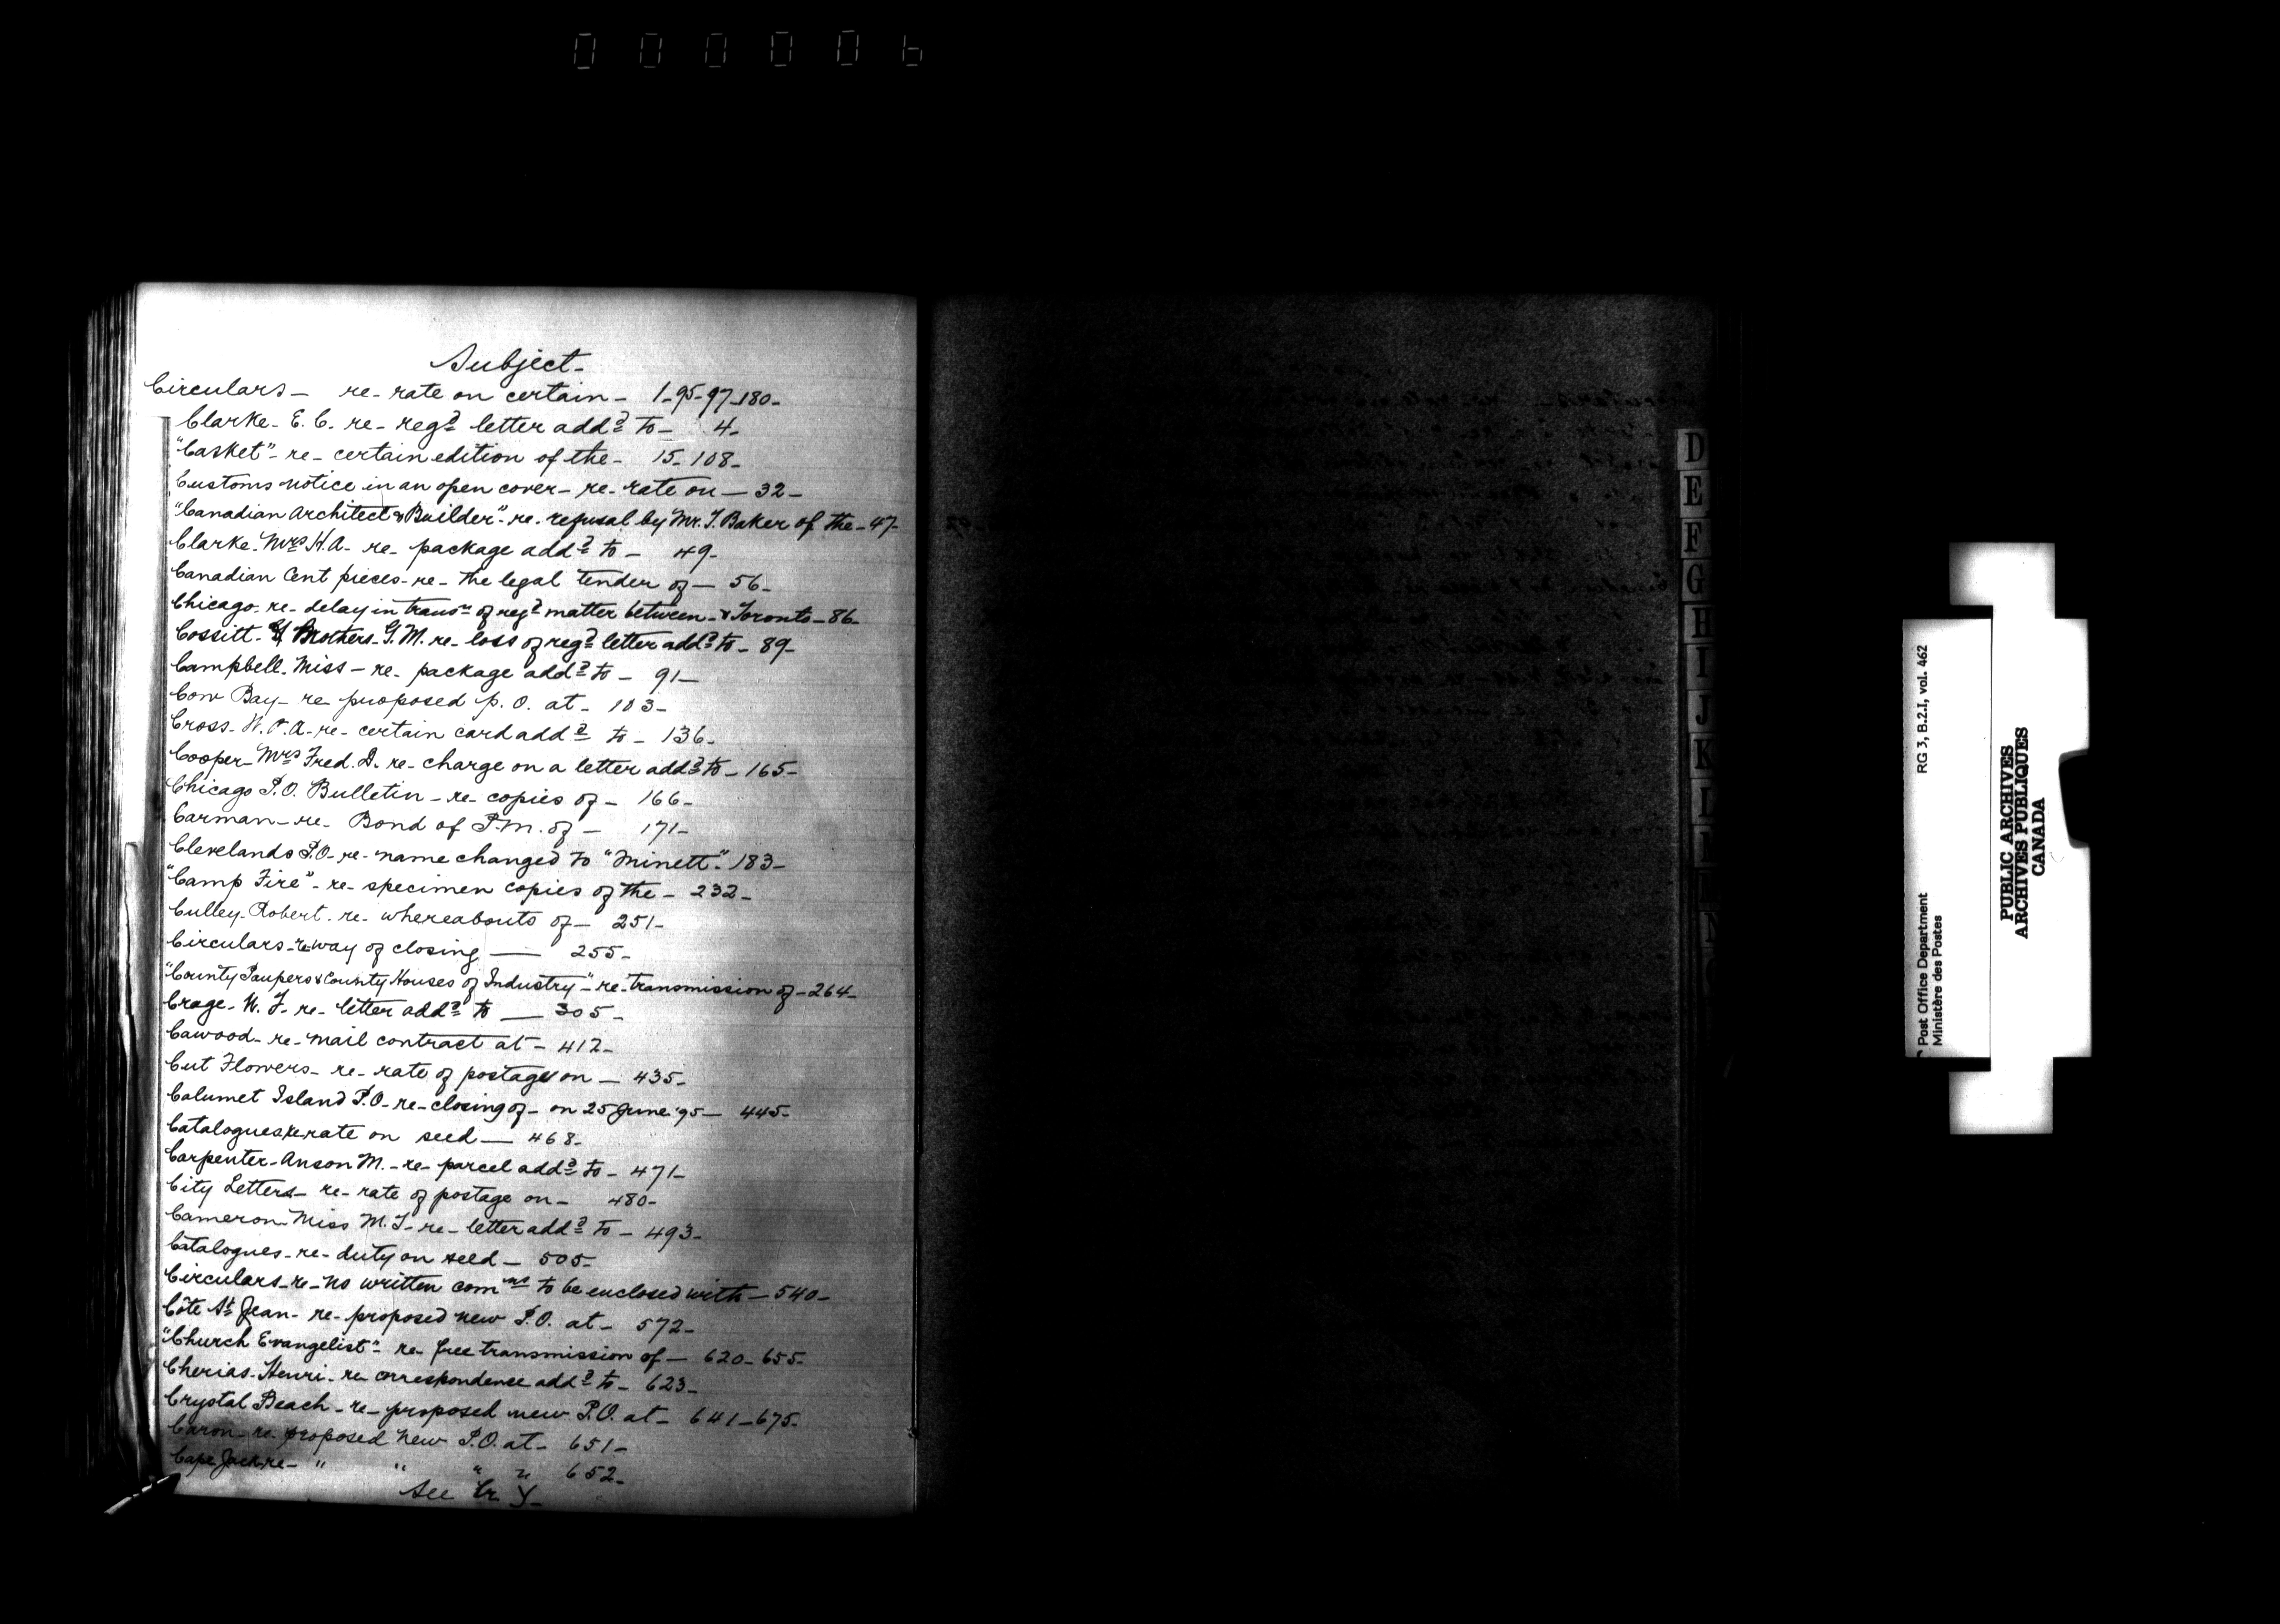 000006
Subject-
Circulars- re- rate on certain- 1-95-97-180-
Clarke- E. C. re- regd letter addd to- 4-
"Casket"- re- certain edition of the- 15-108-
Customs notice in an open cover- re- rate on- 32-
"Canadian Architect & Builder"- re- refusal by Mr. T. Baker of the- 47-
Clarke- Mrs H.A- re- package addd to- 49-
Canadian Cent pieces- re- the legal tender of- 56-
Chicago- re- delay in transn of regd matter between- & Toronto- 86-
Cossitt- Brothers- G. M. re- loss of regd letter addd to- 89-
Campbell- Miss- re- package addd to- 91-
Cow Bay- re proposed p. O. at- 103-
Cross- W. A- re- certain card addd to- 136-
Cooper- Mrs Fred. D. re- charge on a letter addd to- 165-
Chicago P.O. Bulletin- re- copies of- 166-
Carman- re- Bond of P.M. of- 171-
Clevelands P.O- re- name changed to "Minett"- 183-
"Camp Fire"- re- specimen copies of the- 232-
Culley- Robert- re- whereabouts of- 251-
Circulars- re way of closing- 255-
"County Paupers & County Houses of Industry"- re- transmission of- 264-
Crage- W. F- re- letter addd to- 305-
Cawood- re- mail contract at- 412-
Cut Flowers- re- rate of postage on- 435-
Calumet Island P.O- re- closing of- on 25 June '95- 445-
Catalogues re rate on seed- 468-
Carpenter- Anson M.- re- parcel addd to- 471-
City Letters- re- rate of postage on- 480-
Cameron- Miss M. J- re- letter addd to- 493-
Catalogues- re- duty on seed- 505-
Circulars- re- no written comns to be enclosed with- 540-
Côte St Jean- re- proposed new P.O. at- 572-
"Church Evangelist"- re- free transmission of- 620-655-
Cherias- Henri- re correspondence addd to- 623-
Crystal Beach- re- proposed new P.O. at- 641-675-
Caron- re- proposed new P.O. at- 651-
Cape Jack re- " " " " 652-
See Cr Y-
D
E
F
G
H
I
J
K
L
M
N
RG 3, B.2.I, vol. 462
Post Office Department
Ministère des Postes
PUBLIC ARCHIVES
ARCHIVES PUBLIQUES
CANADA